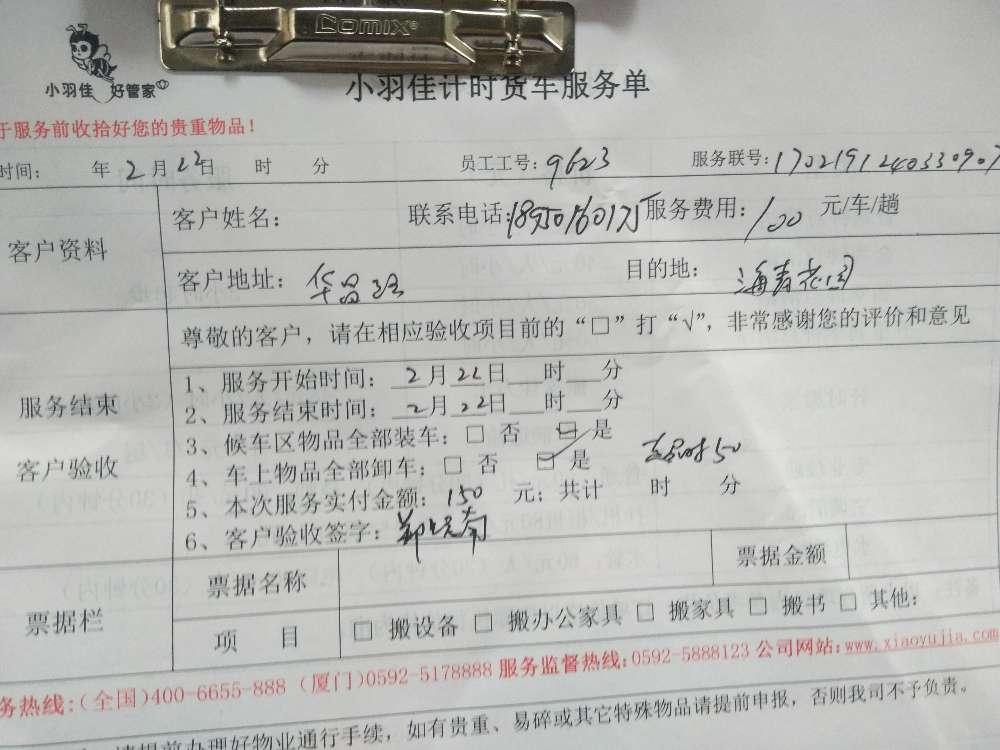 Comix®
小羽佳 好管家
小羽佳计时货车服务单
于服务前收拾好您的贵重物品！
时间： 年2月22日 时 分 员工工号：9623 服务联号：1702191240330907
客户资料
客户姓名： 联系电话： 服务费用：100 元/车/趟
客户地址：华昌 目的地：海青花园
服务结束
客户验收
尊敬的客户，请在相应验收项目前的“□”打“√”，非常感谢您的评价和意见
1、服务开始时间：2月22日 时 分
2、服务结束时间：2月22日 时 分
3、候车区物品全部装车：□ 否 ☑ 是
4、车上物品全部卸车：□ 否 □ 是 50
5、本次服务实付金额：150 元；共计 时 分
6、客户验收签字：
票据栏
票据名称 票据金额
项 目 □ 搬设备 □ 搬办公家具 □ 搬家具 □ 搬书 □ 其他：
务热线：(全国)400-6655-888 (厦门)0592-5178888 服务监督热线：0592-5888123 公司网站：www.xiaoyujia.com
请提前办理好物业通行手续，如有贵重、易碎或其它特殊物品请提前申报，否则我司不予负责。